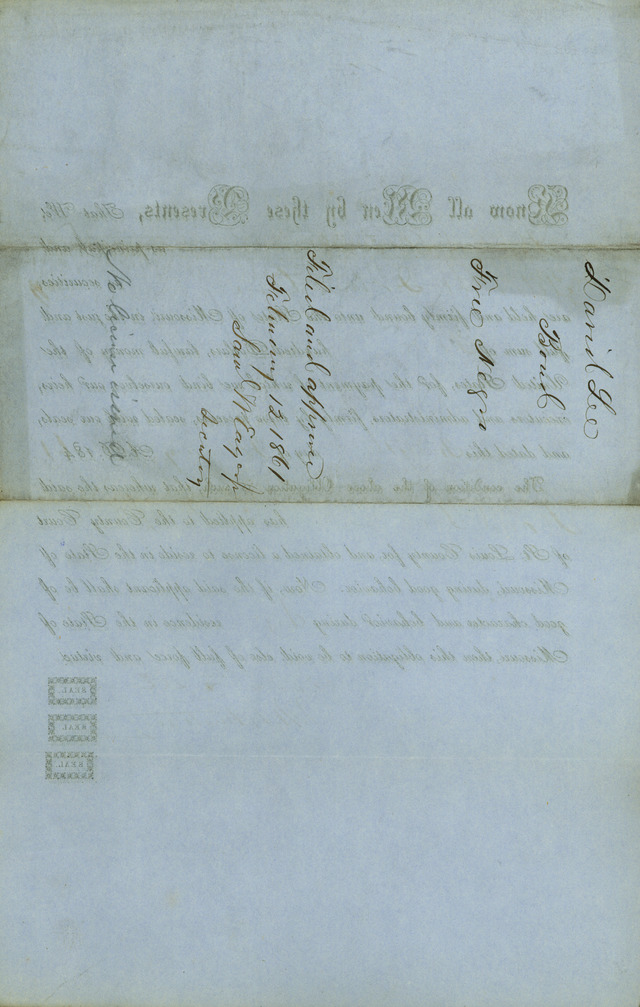 David Lee
Bond
Free Negro
Filed and approved
February 12 1861
Secretary
Know all Men by these Presents, That We,
as principal, and
securities,
are held and firmly bound unto the State of Missouri, in the just and
full sum of hundred Dollars, lawful money of the
United States, for the payment of which we bind ourselves, our heirs,
executors and administrators, firmly by these presents, sealed with our seals,
and dated this A. D. 184
The condition of the above Obligation is such, that whereas the said
has applied to the County Court
of St. Louis County for, and obtained a license to reside in the State of
Missouri, during good behavior: Now, if the said applicant shall be of
good character and behavior during residence in the State of
Missouri, then this obligation to be void, else of full force and virtue.
SEAL
SEAL
SEAL